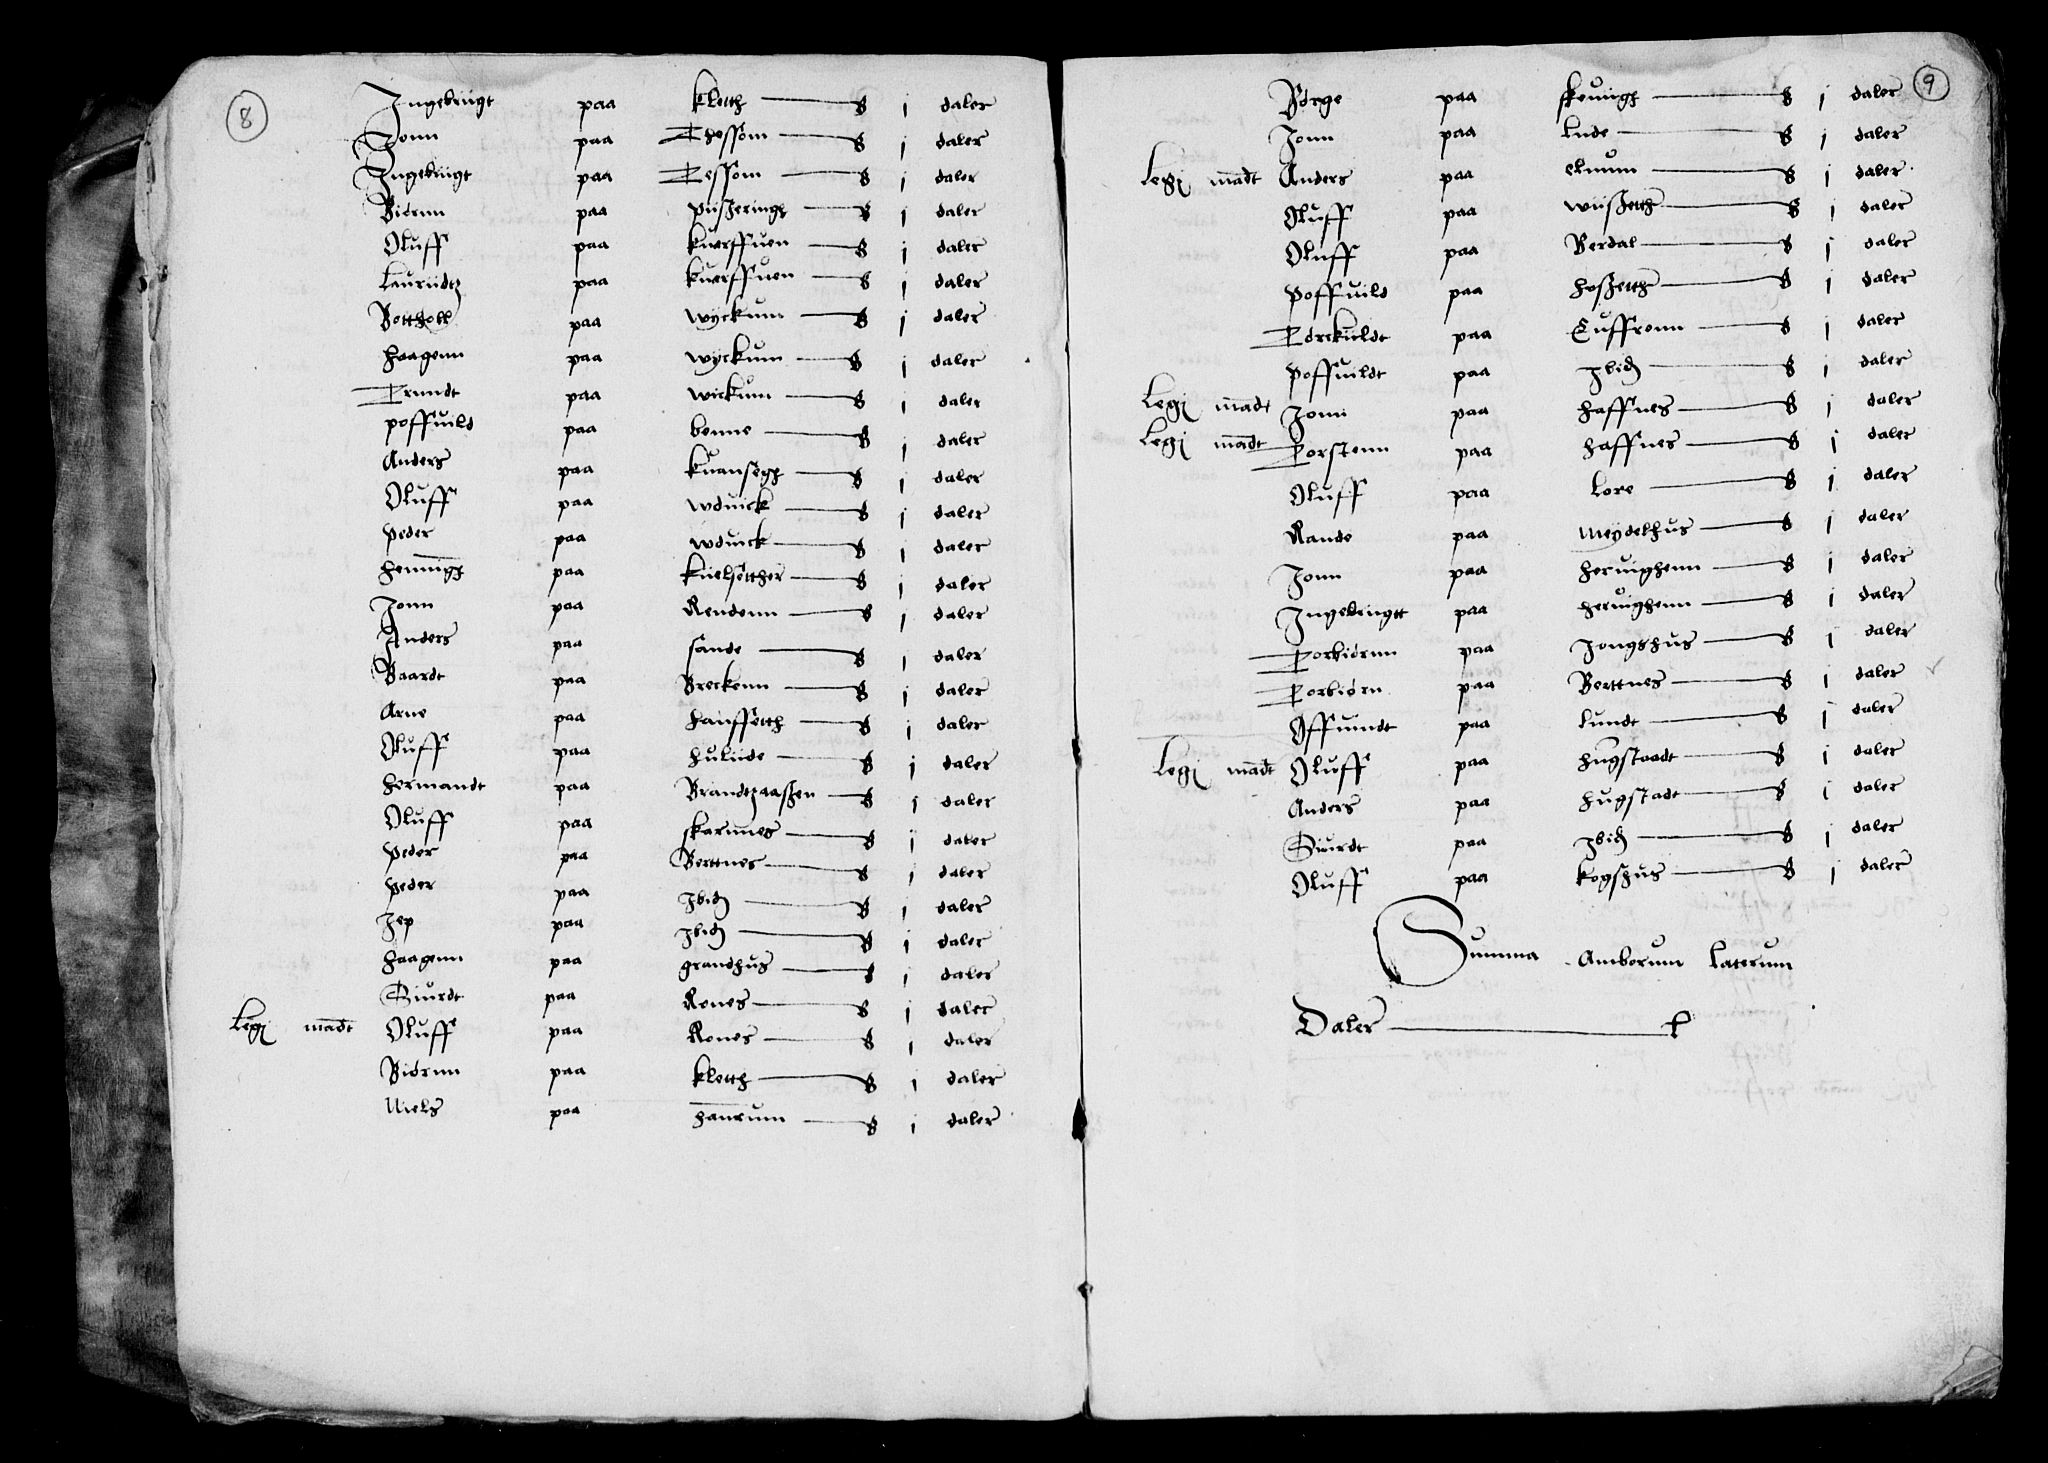 8
Ingebrügt paa kletth — 8 j daler
Jonn paa Thessom — 8 j daler
Ingebrügt paa Tessom — 8 j daler
Biörnn paa püszeringh — 8 j daler
Oluff paa kuerffuen — 8 j daler
Lauriidtz paa kuerffuen — 8 j daler
Bottholl paa wyckum — 8 j daler
Haagenn paa wyckum — 8 j daler
Trundt paa wickum — 8 j daler
poffuild paa benne — 8 j daler
Anders paa kuansögh — 8 j daler
Oluff paa wduick — 8 j daler
Peder paa wduick — 8 j daler
Henningh paa küelsötther — 8 j daler
Jonn paa Rendenn — 8 j daler
Anders paa sande — 8 j daler
Baardt paa Breckenn — 8 j daler
Arne paa hanssötth — 8 j daler
Oluff paa huliide — 8 j daler
Hermandt paa Brandtzaaszen — 8 j daler
Oluff paa skarnnes — 8 j daler
Peder paa Berttnes — 8 j daler
Peder paa Ibid — 8 j daler
Jep paa Ibid — 8 j daler
Haagenn paa grandhus — 8 j daler
Siurdt paa Rones — 8 j daler
Legi madt Oluff paa Rones — 8 j daler
Biörnn paa kletth — 8 j daler
Niels paa hanrum — 8 j daler
9
Börge paa skeüngh — 8 j daler
Jonn paa Lnde — 8 j daler
Legi madt Anders paa elnum — 8 j daler
Oluff paa wüszetth — 8 j daler
Oluff paa Berdal — 8 j daler
Poffuild paa hoszetth — 8 j daler
Törckildt paa Tuffronn — 8 j daler
Poffuildt paa Ibid — 8 j daler
Legi madt Jonn paa haffnes — 8 j daler
Legi madt Torstenn paa haffnes — 8 j daler
Oluff paa Lore — 8 j daler
Rande paa Meydelhus — 8 j daler
Jonn paa heruighenn — 8 j daler
Ingebrügtt paa heruighenn — 8 j daler
Torbiörnn paa Jongshus — 8 j daler
Torbiörn paa Berttnes — 8 j daler
Offuindt paa Lundt — 8 j daler
Legi madt Oluff paa hugstaadt — 8 j daler
Anders paa hugstadt — 8 j daler
Siurdt paa Ibid — 8 j daler
Oluff paa kogshus — 8 j daler
Summa Amborum Laterum
Daler — L